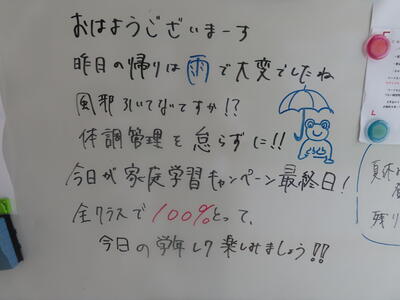 おはようございまーす
昨日の帰りは雨で大変でしたね
風邪引いてないですか!?
体調管理を怠らずに!!
今日が家庭学習キャンペーン最終日!
全クラスで100%とって、
今日の学年レク楽しみましょう!!
夏休
残り